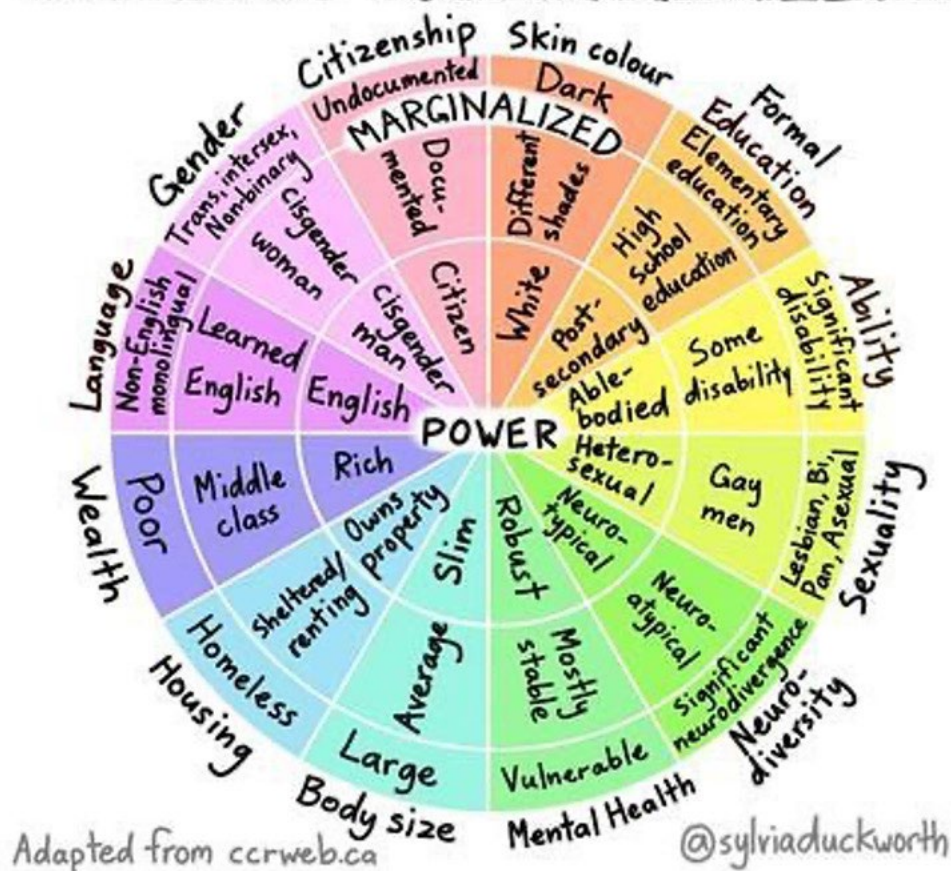 Citizenship
Undocumented
Docu-
mented
Citizen
Skin colour
Dark
Different
shades
White
Formal
Education
Elementary
education
High
school
education
Post-
secondary
Ability
Significant
disability
Some
disability
Able-
bodied
Sexuality
Lesbian, Bi,
Pan, Asexual
Gay
men
Hetero-
sexual
Neuro-
diversity
Significant
neurodivergence
Neuro-
atypical
Neuro-
typical
Mental Health
Vulnerable
Mostly
stable
Robust
Body size
Large
Average
Slim
Housing
Homeless
Sheltered/
renting
Owns
property
Wealth
Poor
Middle
class
Rich
Language
Non-English
monolingual
Learned
English
English
Gender
Trans, intersex,
Nonbinary
Cisgender
woman
Cisgender
man
MARGINALIZED
POWER
Adapted from ccrweb.ca
@sylviaduckworth